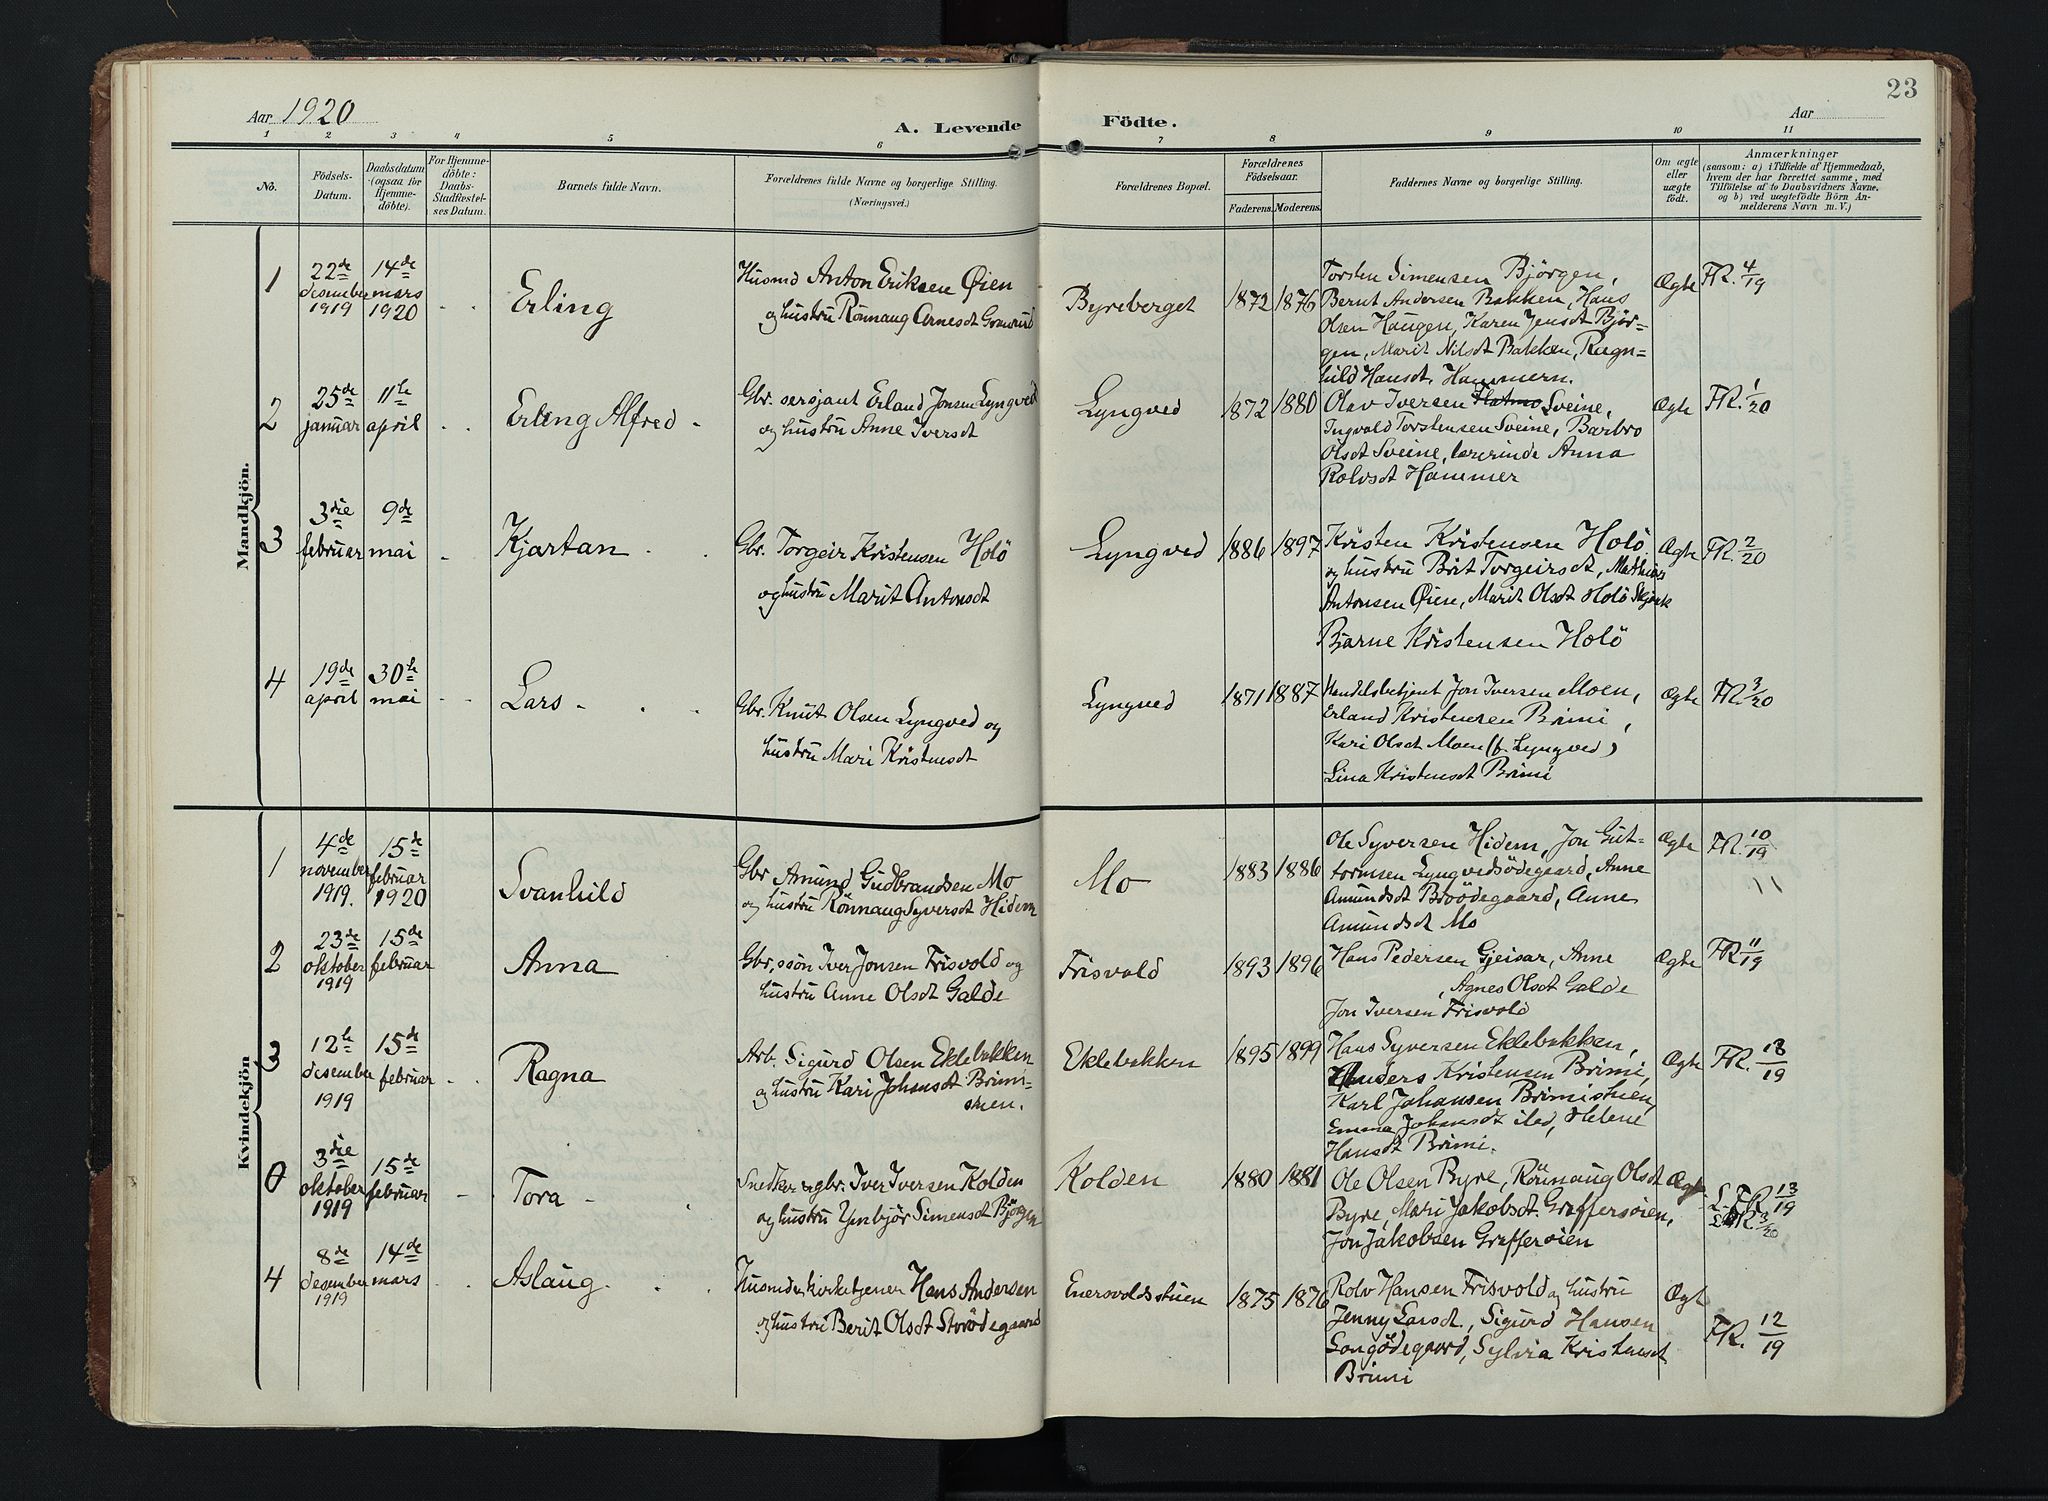 23
Aar 1920
A. Levende Födte.
Aar
1 2 3 4 5 6 7 8 9 10 11
No.
Födsels-
Datum.
Daabsdatum
(ogsaa for
Hjemme-
döbte).
For Hjemme-
döbte:
Daabs-
Stadfæstel-
ses Datum.
Barnets fulde Navn.
Forældrenes fulde Navne og borgerlige Stilling.
(Næringsvei.)
Forældrenes Bopæl.
Forældrenes
Födselsaar.
Faderens. Moderens.
Faddernes Navne og borgerlige Stilling.
Om ægte
eller
uægte
födt.
Anmærkninger
(saasom: a) i Tilfælde af Hjemmedaab,
hvem der har forrettet samme, med
Tilföielse af to Daabsvidners Navne,
og b) ved uægtefödte Börn An-
melderens Navn m. V.)
Mandkjön.
1
22de
desember
1919
14de
mars
1920
Erling
Husmd Anton Eriksen Øien
og hustru Rönnaug Arnesdt
Byreberget
1872 1876
Torsten Simensen Björgen,
Bernt Andersen Bakken, Hans
Olsen Haugen, Karen Jensdt Bjør-
gen, Marit Nilsdt Bakken, Ragn-
hild Hansdt. Hammern.
Ægte
FR. 4/19
2
25de
januar
11te
april
Erling Alfred
Gbr. sersjant Erland Jonsen Lyngved
og hustru Anne Iversdt
Lyngved
1872 1880
Olav Iversen Sveine,
Ingvald Torstensen Sveine, Barbro
Olsdt Sveine, lærerinde Anna
Rolvsdt Hammer
Ægte
FR. 1/20
3
3die
februar
9de
mai
Kjartan
Gbr. Torgeir Kristensen Holö
og hustru Marit Antonsdt
Lyngved
1886 1897
Kristen Kristensen Holö
og hustru Brit Torgeirsdt, Mathias
Antonsen Øien, Marit Olsdt Holö
Bjarne Kristensen Holö
Ægte
FR. 2/20
4
19de
april
30te
mai
Lars
Gbr. Knut Olsen Lyngved og
hustru Mari Kristensdt
Lyngved
1871 1887
Handelsbetjent Jon Iversen Moen,
Erland Kristensen Brimi,
Kari Olsdt Moen (f. Lyngved)
Lina Kristensdt Brimi
Ægte
FR. 3/20
Kvindekjön
1
4de
november
1919.
15de
februar
1920
Svanhild
Gbr Amund Gudbrandsen Mo
og hustru Rönnaug Syversdt Hidem
Mo
1883 1886
Ole Syversen Hidem, Jon Gut-
tormsen Lyngvedsödegaard, Anne
Amundsdt Moödegaard, Anne
Amundsdt Mo
Ægte
FR. 10/19
2
23de
oktober
1919
15de
februar
Anna
Gbr.sön Iver Jonsen Frisvold og
hustru Anne Olsdt Galde
Frisvold
1893 1896
Hans Pedersen Gjeisar, Anne
, Agnes Olsdt Galde
Jon Iversen Frisvold
Ægte
FR 11/19
3
12te
desember
1919
15de
februar
Ragna
Arb. Sigurd Olsen Eklebakken
og hustru Kari Johansdt Brimi-
stuen.
Eklebakken
1895 1899
Hans Syversen Eklebakken,
Anders Kristensen Brimi,
Karl Johansen Brimistuen,
Emma Johansdt ilad, Helene
Hansdt Brimi.
Ægte
FR. 18/19
0
3die
oktober
1919
15de
februar
Tora
Snedker og gbr. Iver Iversen Kolden
og hustru Ynbjör Simensdt Björgen
Kolden
1880 1881
Ole Olsen Byre, Rönnaug Olsdt
Byre, Mari Jakobsdt Graffersøien,
Jon Jakobsen Graffersøien
Ægte
FR 13/19
4
8de
desember
1919
14de
mars
Aslaug
Husmd &amp; kirketjener Hans Andersen
og hustru Berit Olsdt Storödegaard
Enersvoldsstuen
1875 1876
Rolv Hansen Frisvold og hustru
Jenny Larsdt., Sigurd Hansen
Sylvia Kristensdt
Brimi
Ægt
FR. 12/19